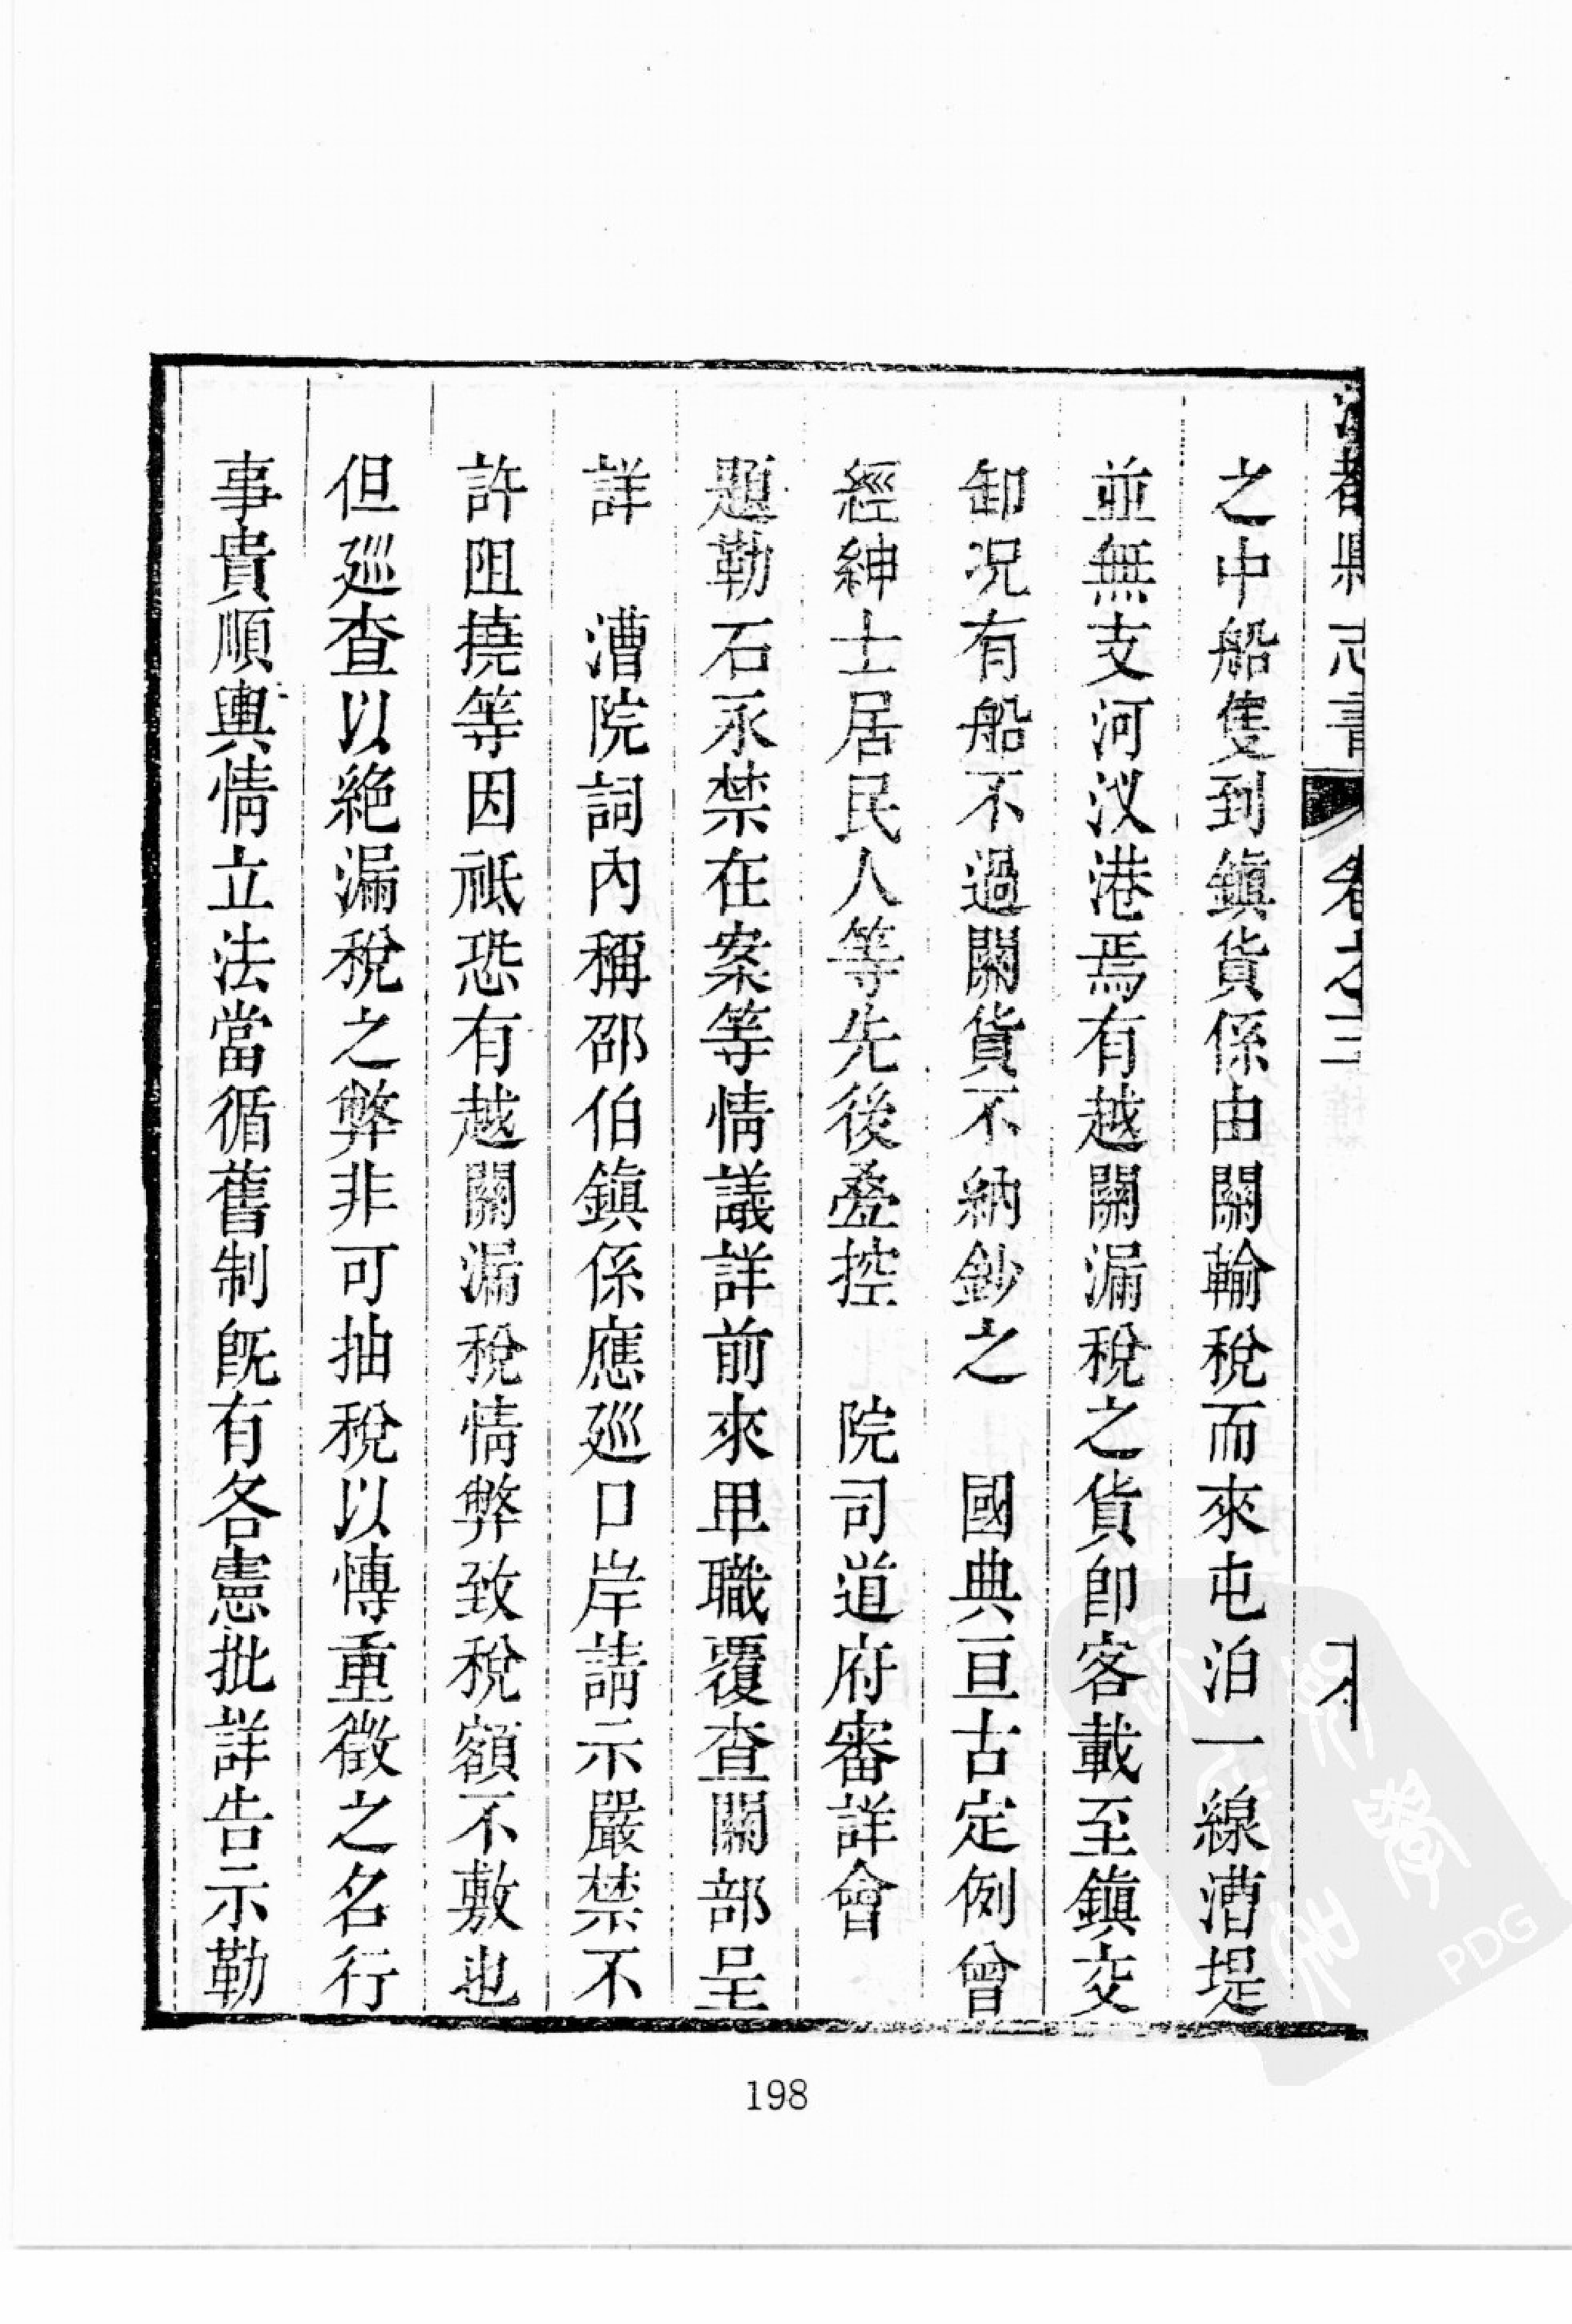 縣志書 卷之三
之中船隻到鎮貨係由關輸稅而來屯泊一線漕堤
並無支河汊港焉有越關漏稅之貨卽客載至鎮交
卸况有船不過關貨不納鈔之 國典亘古定例曾
經紳士居民人等先後叠控 院司道府審詳會
題勒石永禁在案等情議詳前來甲職覆查關部呈
詳 漕院詞內稱邵伯鎮係應廵口岸請示嚴禁不
許阻撓等因祗恐有越關漏稅情弊致稅額不敷也
但廵查以絕漏稅之弊非可抽稅以慱重徵之名行
事貴順輿情立法當循舊制旣有各憲批詳告示勒
198
PDG